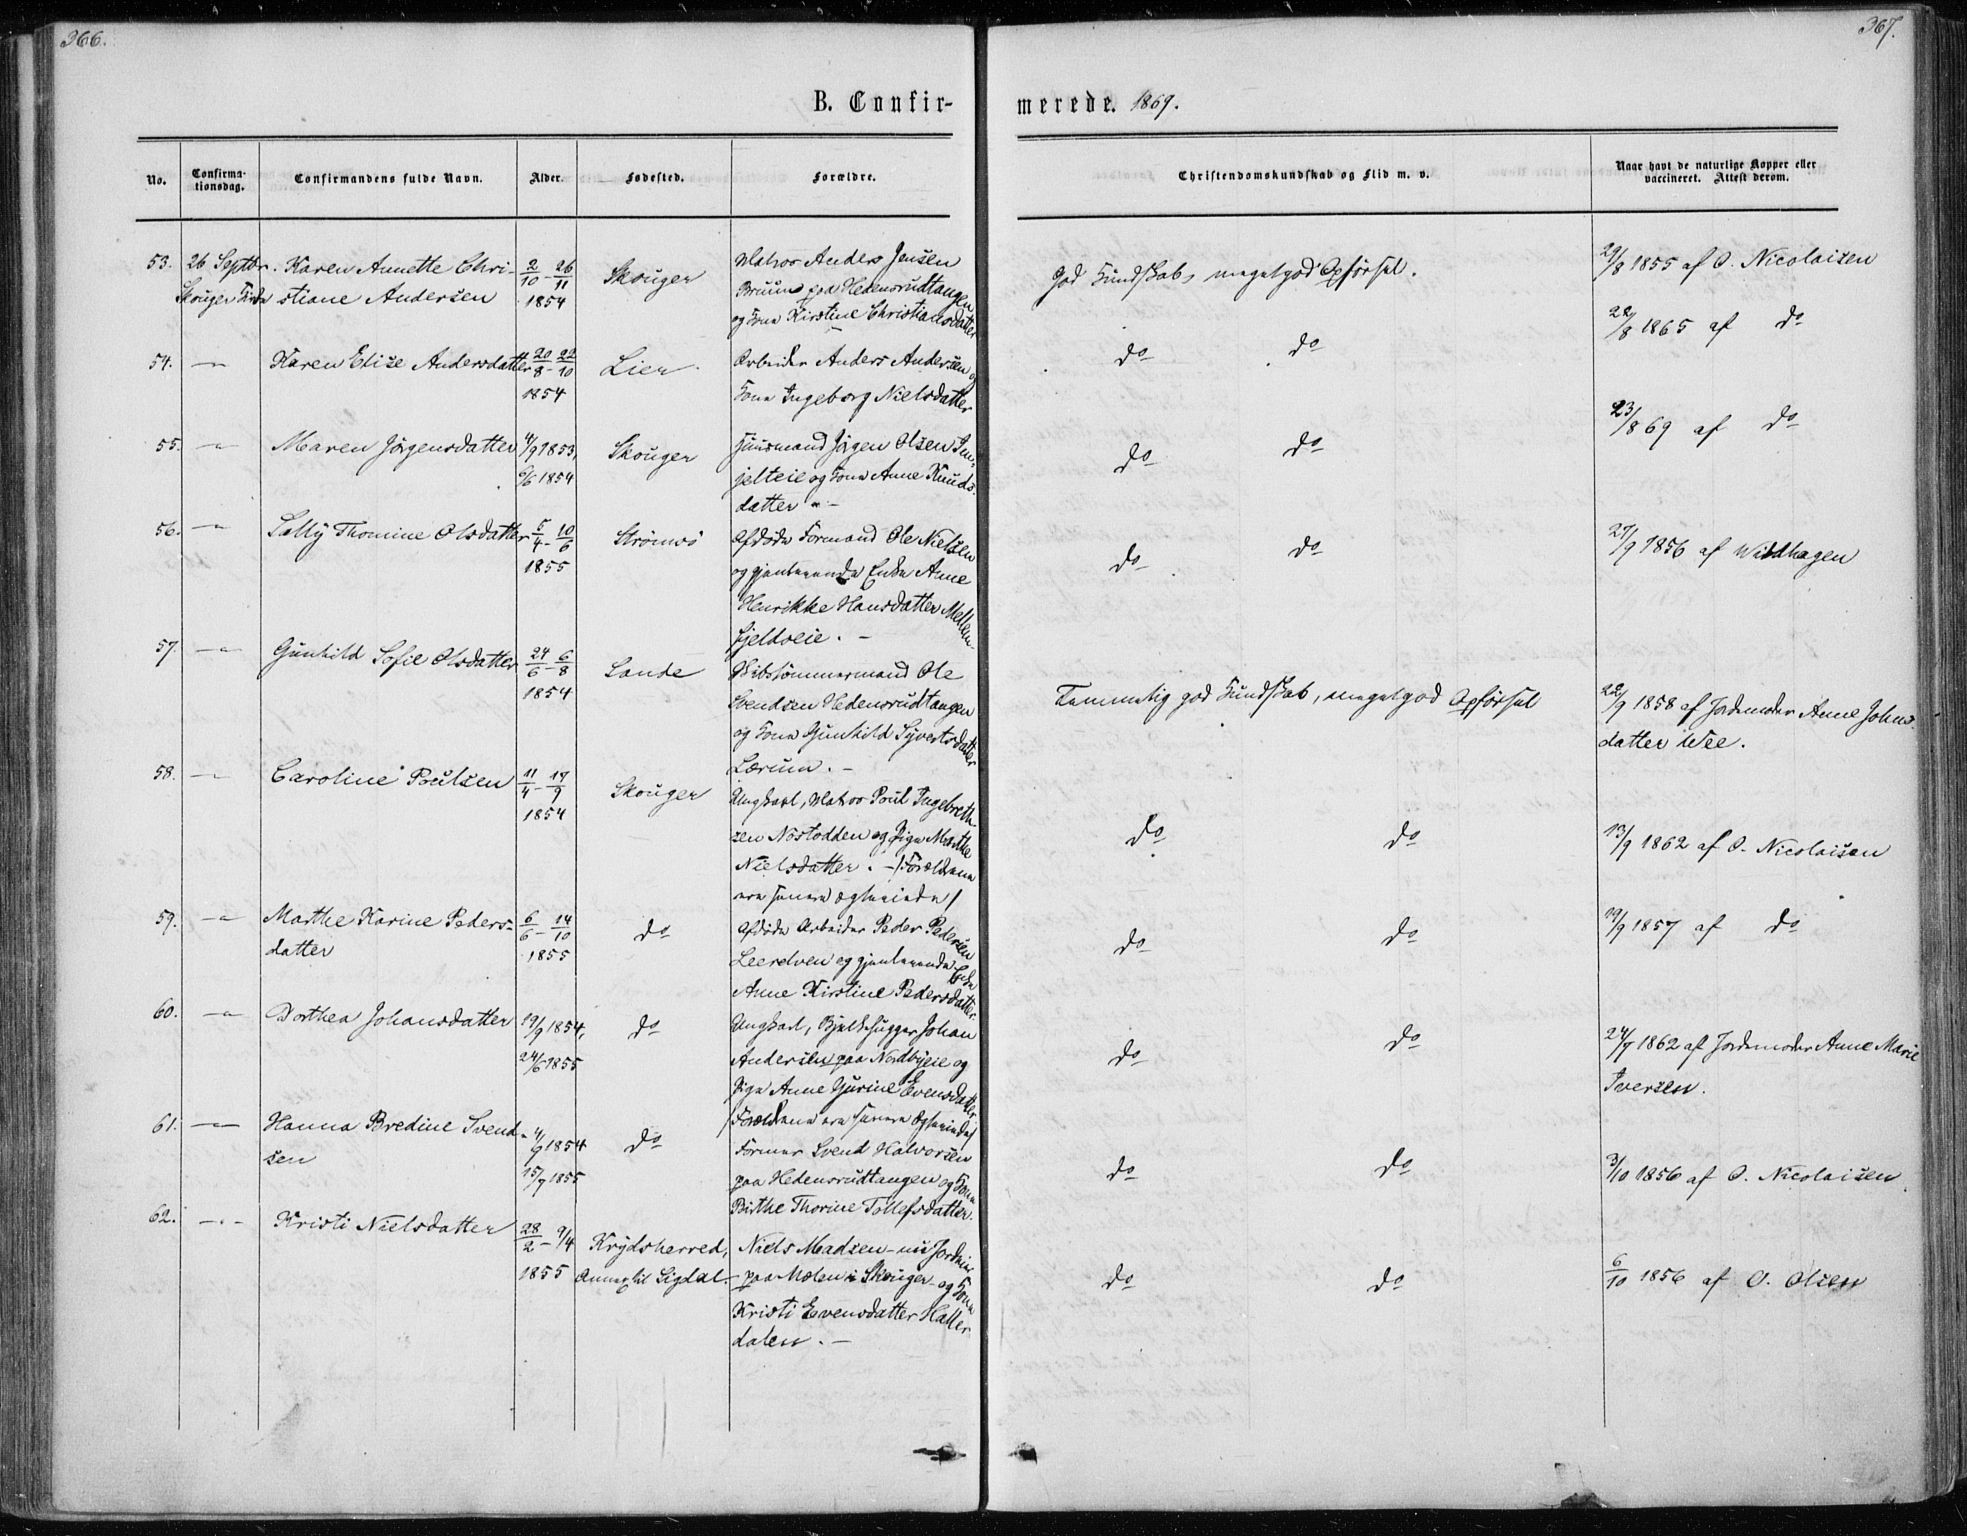 366.
367.
B. Confir-
merede. 1869.
No.
Confirma-
tionsdag.
Confirmandens fulde Navn.
Alder.
Fødested.
Forældre.
Christendomskundskab og Flid m. v.
Naar havt de naturlige Kopper eller
vaccineret. Attest derom.
53. 26 Septbr. Karen Annette Chri- 2/10 - 26/11 Skouger Matros Anders Jensen
Skouger Kirke stiane Andersen 1854 Bruun paa Hedensrudtangen
og Kone Kirstine Christiansdatter
God Kundskab, megetgod Opførsel. 29/8 1855 af O. Nicolaisen
54. — Karen Elise Andersdatter 20/8 - 22/10 Lier Arbeider Anders Andersen og
1854 Kone Ingeborg Nielsdatter
do do 22/8 1865 af do
55. — Maren Jörgensdatter 4/9 1853, Skouger Huusmand Jörgen Olsen
6/6 1854 og Kone Anne Knuds-
datter
do do 23/8 69 af do
56. — Sally Thomine Olsdatter 5/4 - 10/6 Strömsö Afdöde Formand Ole Nielsen
1855 og gjenlevende Enke Anne
Henrikke Hansdatter Mellem-
fjeldseie. —
do do 27/9 1856 af Wildhagen
57. — Gunhild Sofie Olsdatter 24/6 - 6/8 Sande Skibstömmermand Ole
1854 Svendsen Hedensrudtangen
og Kone Gunhild Syvertsdatter
Lærum. —
Temmelig god Kundskab, megetgod Opførsel 22/9 1858 af Jordemoder Anne Johns-
datter Wee.
58. — Caroline Poulsen 11/4 - 17/9 Skouger Ungkarl, Matros Poul Ingebreth-
1854 sen Nöstodden og Pige Marthe
Nielsdatter. — /Forældrene
ere senere ægteviede/
do do 13/9 1862 af O. Nicolaisen
59. — Marthe Karine Peders- 6/6 - 14/10 do Afdöde Arbeider Peder Pedersen
datter 1855 Leerelven og gjenlevende Enke
Anne Kirstine Pedersdatter.
do do 19/9 1857 af do
60. — Dorthea Johansdatter 19/9 1854, do Ungkarl, Bjelkehugger Johan
24/6 1855 Andersen paa Nordbyeie og
Pige Anne Gurine Evensdatter
/Forældrene ere senere ægteviede/
do do 24/7 1862 af Jordemoder Anne Marie
Iversen.
61. — Hanna Bredine Svend- 4/9 1854 do Former Svend Halvorsen
sen 15/7 1855 paa Hedensrudtangen og Kone
Birthe Thorine Tollefsdatter.
do do 3/10 1856 af O. Nicolaisen
62. — Kristi Nielsdatter 28/2 - 9/4 Krydsherred, Niels Madsen - nu
1855 Annex til Sigdal. paa Molen i Skouger - og Kone
Kristi Evensdatter Haller-
dalen. —
do do 6/10 1856 af O. Olsen